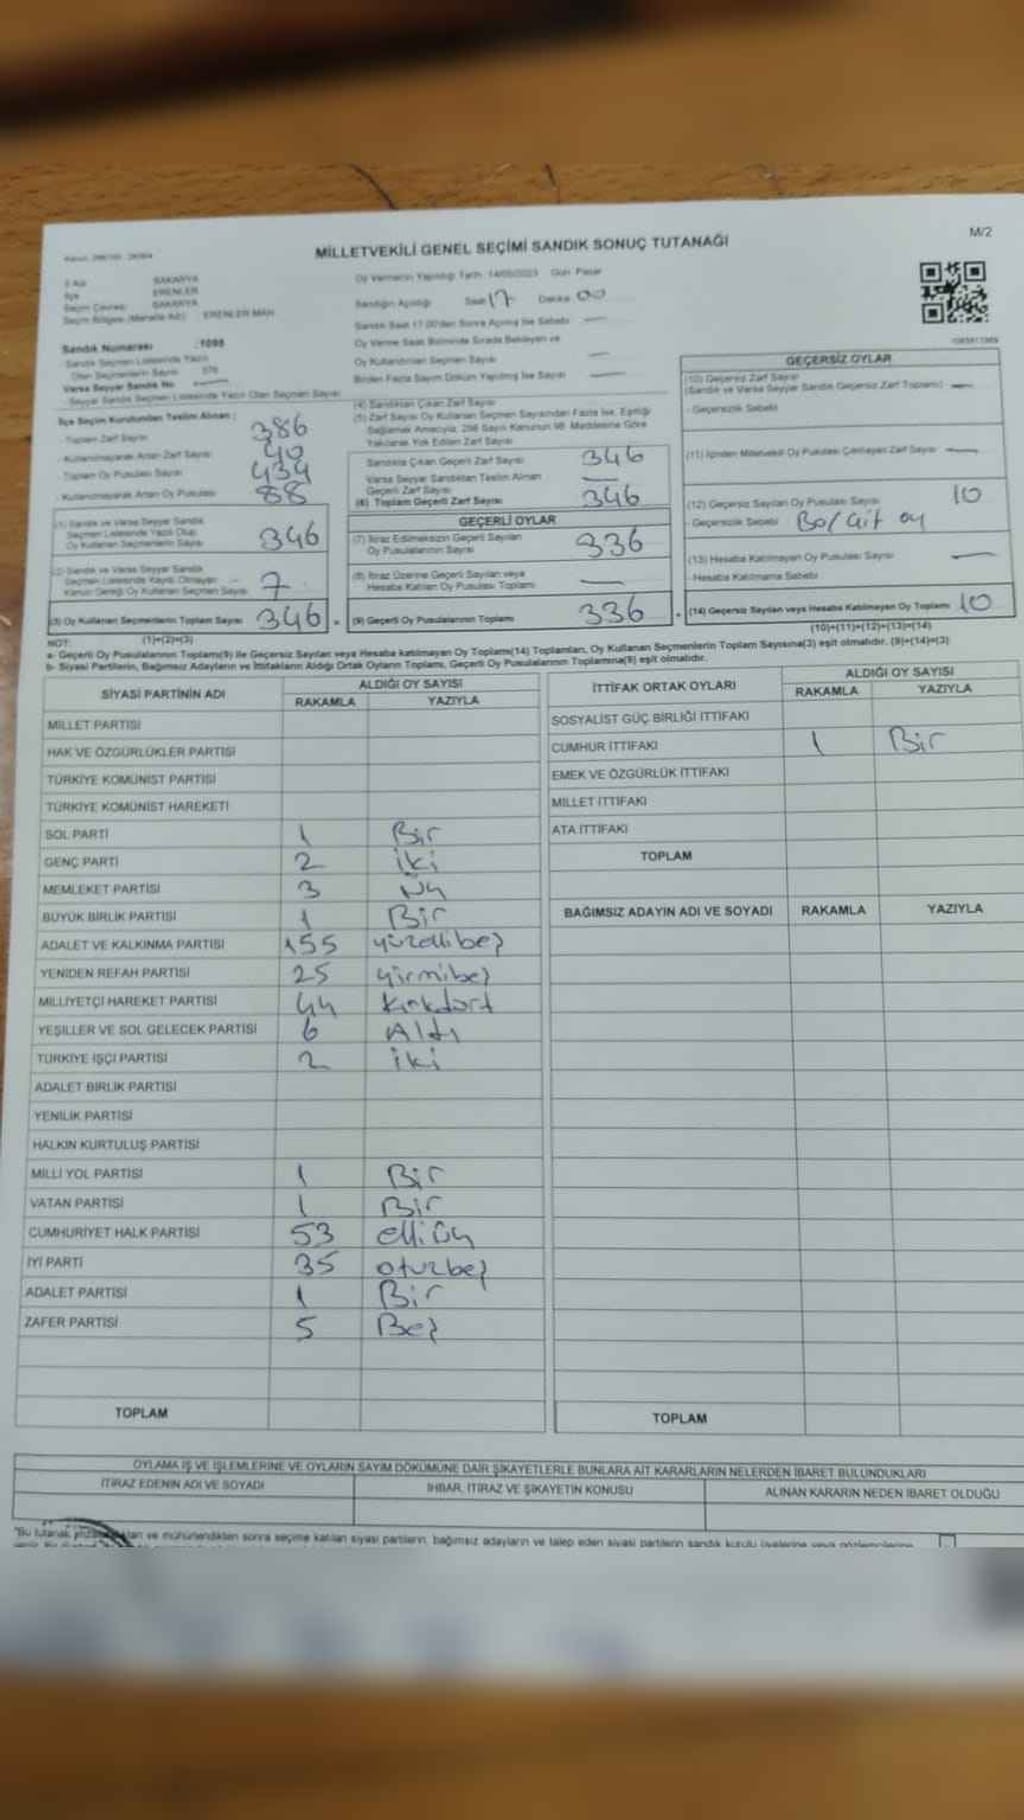 M/2
MİLLETVEKİLİ GENEL SEÇİMİ SANDIK SONUÇ TUTANAĞI
SAKARYA
İlçe ERENLER
Seçim Çevresi SAKARYA
Seçim Bölgesi (Mahalle Adı) ERENLER MAH.
Sandık Numarası :1095
Sandık Seçmen Listesinde Yazılı
Olan Seçmenlerin Sayısı
Varsa Seyyar Sandık No
Seyyar Sandık Seçmen Listesinde Yazılı Olan Seçmen Sayısı
Oy Vermenin Yapıldığı Tarih 14/05/2023 Gün Pazar
Sandığın Açıldığı Saat 17 Dakika 00
Sandık Saat 17.00'den Sonra Açılmış İse Sebebi —
Oy Verme Saati Bitiminde Sırada Bekleyen ve
Oy Kullandırılan Seçmen Sayısı —
Birden Fazla Sayım Döküm Yapılmış İse Sayısı —
İlçe Seçim Kurulundan Teslim Alınan :
- Toplam Zarf Sayısı 386
- Kullanılmayarak Artan Zarf Sayısı 40
Toplam Oy Pusulası Sayısı 434
- Kullanılmayarak Artan Oy Pusulası 88
(1) Sandık ve Varsa Seyyar Sandık
Seçmen Listesinde Yazılı Olup
Oy Kullanan Seçmenlerin Sayısı 346
(2) Sandık ve Varsa Seyyar Sandık
Seçmen Listesinde Kayıtlı Olmayan
Kanun Gereği Oy Kullanan Seçmen Sayısı 7
(3) Oy Kullanan Seçmenlerin Toplam Sayısı 346
(1)+(2)=(3)
(4) Sandıktan Çıkan Zarf Sayısı
(5) Zarf Sayısı Oy Kullanan Seçmen Sayısından Fazla İse, Eşitliği
Sağlamak Amacıyla, 298 Sayılı Kanunun 98. Maddesine Göre
Yakılarak Yok Edilen Zarf Sayısı
Sandıkta Çıkan Geçerli Zarf Sayısı 346
Varsa Seyyar Sandıktan Teslim Alınan
Geçerli Zarf Sayısı —
(6) Toplam Geçerli Zarf Sayısı 346
GEÇERLİ OYLAR
(7) İtiraz Edilmeksizin Geçerli Sayılan
Oy Pusulalarının Sayısı 336
(8) İtiraz Üzerine Geçerli Sayılan veya
Hesaba Katılan Oy Pusulası Toplamı —
(9) Geçerli Oy Pusulalarının Toplamı 336
GEÇERSİZ OYLAR
(10) Geçersiz Zarf Sayısı
(Sandık ve Varsa Seyyar Sandık Geçersiz Zarf Toplamı) —
- Geçersizlik Sebebi
(11) İçinden Milletvekili Oy Pusulası Çıkmayan Zarf Sayısı —
(12) Geçersiz Sayılan Oy Pusulası Sayısı 10
- Geçersizlik Sebebi
(13) Hesaba Katılmayan Oy Pusulası Sayısı —
- Hesaba Katılmama Sebebi
(14) Geçersiz Sayılan veya Hesaba Katılmayan Oy Toplamı 10
(10)+(11)+(12)+(13)=(14)
NOT:
a- Geçerli Oy Pusulalarının Toplamı(9) ile Geçersiz Sayılan veya Hesaba katılmayan Oy Toplamı(14) Toplamları, Oy Kullanan Seçmenlerin Toplam Sayısına(3) eşit olmalıdır. (9)+(14)=(3)
b- Siyasi Partilerin, Bağımsız Adayların ve İttifakların Aldığı Ortak Oyların Toplamı, Geçerli Oy Pusulalarının Toplamına(9) eşit olmalıdır.
SİYASİ PARTİNİN ADI ALDIĞI OY SAYISI
RAKAMLA YAZIYLA
MİLLET PARTİSİ
HAK VE ÖZGÜRLÜKLER PARTİSİ
TÜRKİYE KOMÜNİST PARTİSİ
TÜRKİYE KOMÜNİST HAREKETİ
SOL PARTİ 1 Bir
GENÇ PARTİ 2 iki
MEMLEKET PARTİSİ 3 Üç
BÜYÜK BİRLİK PARTİSİ 1 Bir
ADALET VE KALKINMA PARTİSİ 155 yüzellibeş
YENİDEN REFAH PARTİSİ 25 yirmibeş
MİLLİYETÇİ HAREKET PARTİSİ 44 kırkdört
YEŞİLLER VE SOL GELECEK PARTİSİ 6 Altı
TÜRKİYE İŞÇİ PARTİSİ 2 iki
ADALET BİRLİK PARTİSİ
YENİLİK PARTİSİ
HALKIN KURTULUŞ PARTİSİ
MİLLİ YOL PARTİSİ 1 Bir
VATAN PARTİSİ 1 Bir
CUMHURİYET HALK PARTİSİ 53 elliüç
İYİ PARTİ 35 otuzbeş
ADALET PARTİSİ 1 Bir
ZAFER PARTİSİ 5 Beş
TOPLAM
İTTİFAK ORTAK OYLARI ALDIĞI OY SAYISI
RAKAMLA YAZIYLA
SOSYALİST GÜÇ BİRLİĞİ İTTİFAKI
CUMHUR İTTİFAKI 1 Bir
EMEK VE ÖZGÜRLÜK İTTİFAKI
MİLLET İTTİFAKI
ATA İTTİFAKI
TOPLAM
BAĞIMSIZ ADAYIN ADI VE SOYADI RAKAMLA YAZIYLA
TOPLAM
OYLAMA İŞ VE İŞLEMLERİNE VE OYLARIN SAYIM DÖKÜMÜNE DAİR ŞİKAYETLERLE BUNLARA AİT KARARLARIN NELERDEN İBARET BULUNDUKLARI
İTİRAZ EDENİN ADI VE SOYADI İHBAR, İTİRAZ VE ŞİKAYETİN KONUSU ALINAN KARARIN NEDEN İBARET OLDUĞU
"Bu tutanak ve mühürlendikten sonra seçime katılan siyasi partilerin, bağımsız adayların ve talep eden siyasi partilerin sandık kurulu üyelerine veya gözlemcilerine